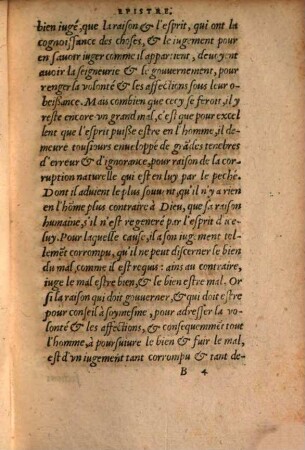 EPISTRE.
bien iugé, que la raison & l'esprit, qui ont la
cognoissance des choses, & le iugement pour
en sauoir iuger comme il appartient, deuoyent
auoir la seigneurie & le gouuernement, pour
renger la volonté & les affections sous leur o-
beissance. Mais combien que cecy se feroit, il y
reste encore vn grand mal, c'est que pour excel
lent que l'esprit puisse estre en l'homme, il de-
meure tousiours enueloppé de grãdes tenebres
d'erreur & d'ignorance, pour raison de la cor-
ruption naturelle qui est en luy par le peché.
Dont il aduient le plus souuẽt, qu'il n'y a rien
en l'hõme plus contraire à Dieu, que sa raison
humaine, s'il n'est regeneré par l'esprit d'ice-
luy. Pour laquelle cause, il a son iugement tel-
lemẽt corrompu, qu'il ne peut discerner le bien
du mal, comme il est requis: ains au contraire,
iuge le mal estre bien, & le bien estre mal. Or
si la raison qui doit gouuerner, & qui doit estre
pour conseil à soymesme, pour adresser la vo-
lonté & les affections, & consequemmẽt tout
l'homme, à poursuiure le bien & fuir le mal,
est d'vn iugement tant corrompu & tant de-
B 4